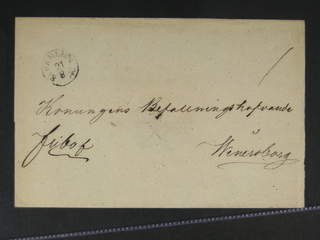 Konungens Befallningshafvande
fribref
i
Wenersborg